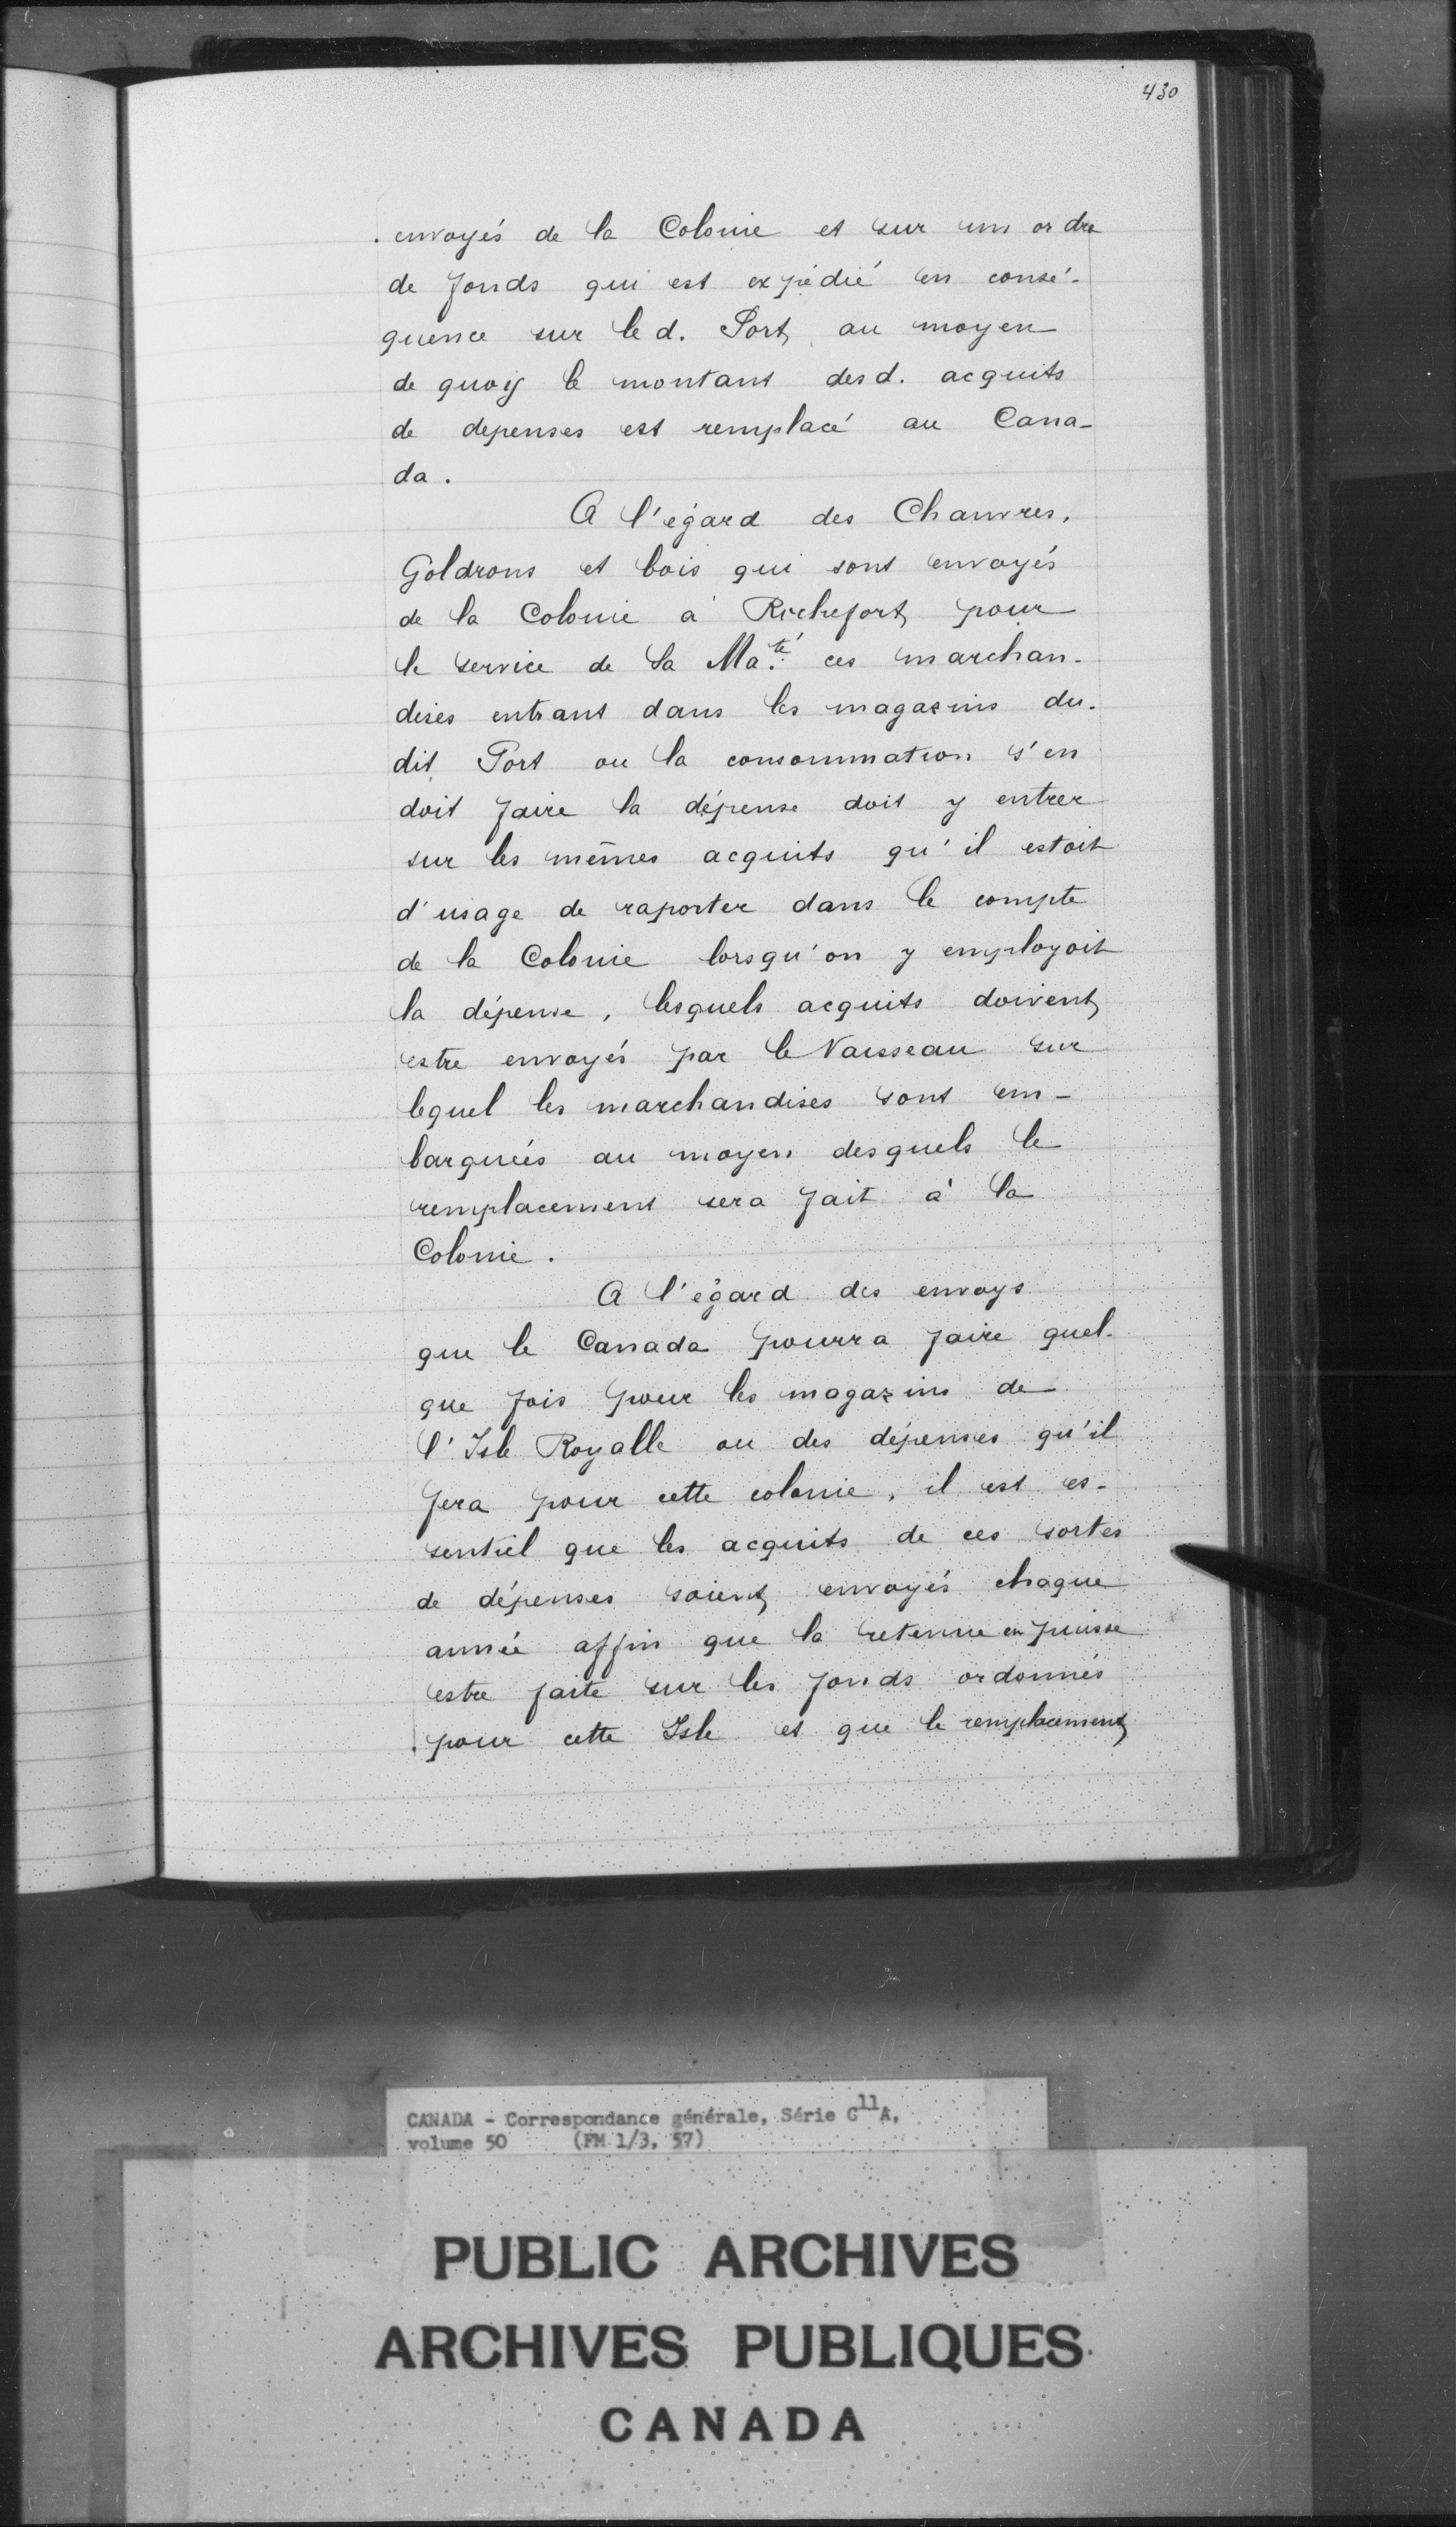 430
envoyés de la Colonie et sur un ordre
de fonds qui est expédié en consé-
quence sur led. Port, au moyen
de quoy le montant desd. acquits
de depenses est remplacé au Cana-
da.
A l'égard des Chanvres,
Goldrons et bois qui sont envoyés
de la Colonie à Rochefort pour
le service de Sa Ma.té ces marchan-
dises entrant dans les magasins du-
dit Port ou la consommation s'en
doit faire la dépense doit y entrer
sur les mêmes acquits qu'il estoit
d'usage de raporter dans le compte
de la Colonie lorsqu'on y employoit
la dépense, lesquels acquits doivent
estre envoyés par le Vaisseau sur
lequel les marchandises sont em-
barquées au moyen desquels le
remplacement sera fait à la
Colonie.
A l'égard des envoys
que le Canada pourra faire quel-
que fois pour les magazins de
l'Isle Royalle ou des dépenses qu'il
fera pour cette colonie, il est es-
sentiel que les acquits de ces sortes
de dépenses soient envoyés chaque
année affin que la retenue en puisse
estre faite sur les fonds ordonnés
pour cette Isle et que le remplacement
CANADA - Correspondance générale, Série C11A,
volume 50 (FM 1/3, 57)
PUBLIC ARCHIVES
ARCHIVES PUBLIQUES
CANADA